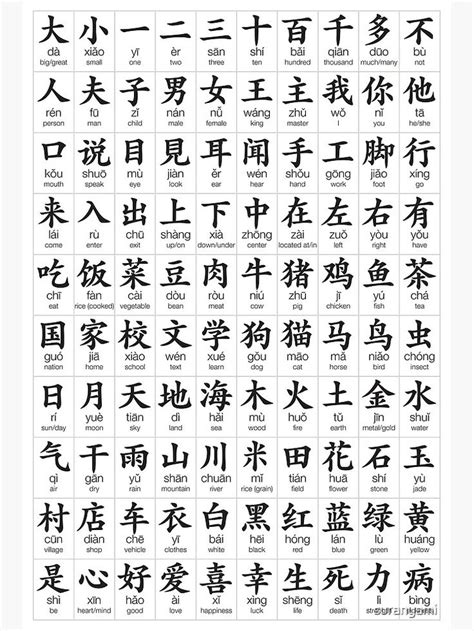 大 小 一 二 三 十 百 千 多 不
dà xiǎo yī èr sān shí bǎi qiān duō bù
big/great small one two three ten hundred thousand much/many not
人 夫 子 男 女 王 主 我 你 他
rén fū zǐ nán nǚ wáng zhǔ wǒ nǐ tā
person man child male female king master I you he/she
口 说 目 見 耳 闻 手 工 脚 行
kǒu shuō mù jiàn ěr wén shǒu gōng jiǎo xíng
mouth speak eye look ear hear hand work foot go
来 入 出 上 下 中 在 左 右 有
lái rù chū shàng xià zhōng zài zuǒ yòu yǒu
come enter exit up/on down/under center located at/in left right have
吃 饭 菜 豆 肉 牛 猪 鸡 鱼 茶
chī fàn cài dòu ròu niú zhū jī yú chá
eat rice (cooked) vegetable bean meat cow pig chicken fish tea
国 家 校 文 学 狗 猫 马 鸟 虫
guó jiā xiào wén xué gǒu māo mǎ niǎo chóng
nation home school text learn dog cat horse bird insect
日 月 天 地 海 木 火 土 金 水
rí yuè tiān dì hǎi mù huǒ tǔ jīn shuǐ
sun/day moon sky land sea wood fire earth metal/gold water
气 干 雨 山 川 米 田 花 石 玉
qì gān yǔ shān chuān mǐ tián huā shí yù
air dry rain mountain river rice (grain) field flower stone jade
村 店 车 衣 白 黑 红 蓝 绿 黄
cūn diàn chē yī bái hēi hóng lán lǜ huáng
village shop vehicle clothes white black red blue green yellow
是 心 好 爱 喜 幸 生 死 力 病
shì xīn hǎo ài xǐ xìng shēng sǐ lì bìng
be heart/mind good love happiness luck life death illness